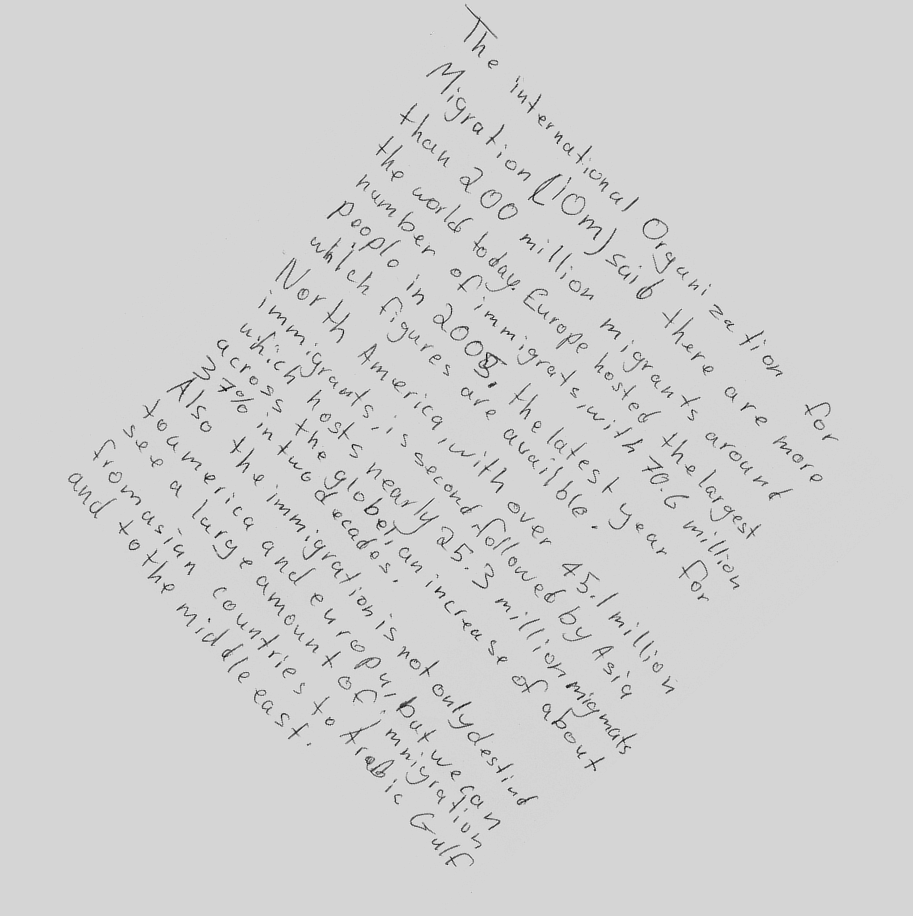 The international Organization for
Migration (IOm) said there are more
than 200 million migrants around
the world today. Europe hosted the largest
number of immigrats, with 70.6 million
people in 2005, the latest year for
which figures are availible.
North America, with over 45.1 million
immigrants, is second, followed by Asia
which hosts nearly 25.3 million migrnats
across the globe, an increase of about
37% in two decades.
Also the immigration is not only destind
to america and europu, but we can
see a large amount of immigration
from asian countries to Arabic Gulf
and to the middle east.